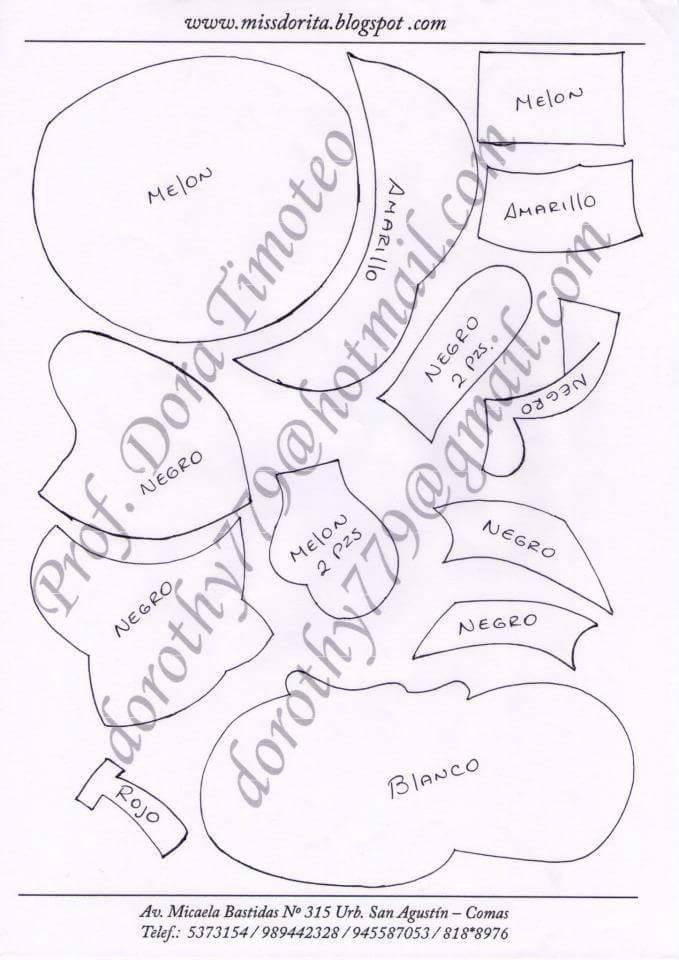 www.missdorita.blogspot .com
Melon
Melon
Amarillo
Amarillo
Negro
2 Pzs.
Negro
Negro
Melon
2 Pzs
Negro
Negro
Negro
Blanco
Rojo
Prof. Dora Timoteo
dorothy779@hotmail.com
dorothy779@gmail.com
Av. Micaela Bastidas Nº 315 Urb. San Agustín – Comas
Telef.: 5373154 / 989442328 / 945587053 / 818*8976